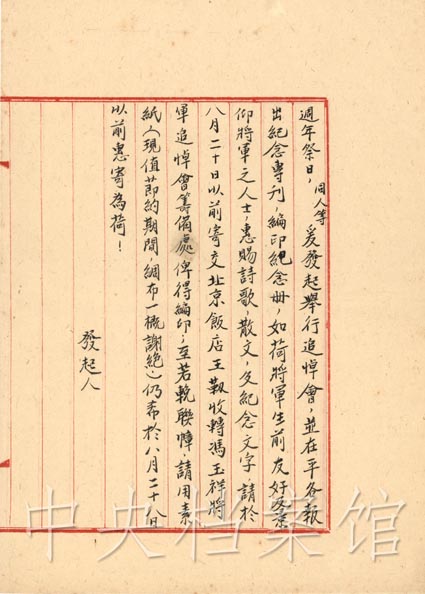 週年祭日，同人等爰發起舉行追悼會，並在平各報
出紀念專刊，編印紀念冊，如荷將軍生前友好及景
仰將軍之人士，惠賜詩歌，散文，及紀念文字 請於
八月二十日以前寄交北京飯店王 收轉馮玉祥將
軍追悼會籌備處俾得編印；至若輓聯幛，請用素
紙（現值節約期間，綢布一概謝絕）仍希於八月二十八日
以前惠寄為荷！
發起人
中央档案馆